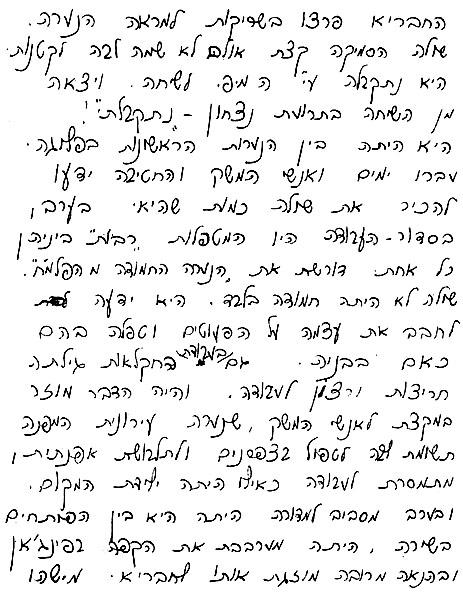 החבריא פרצו בשריקות למראה הנערה.
שולה הסמיקה קצת אולם לא שמה לבה לקטנות
היא נתקבלה ע"י המ.פ. לשיחה. ויצאה
מן השיחה בתרועת נצחון - "נתקבלתי"!
היא היתה בין הנערות הראשונות בפלוגה.
עברו ימים ואנשי המשק והחטיבה ידעו
להכיר את שולה כמות שהיא. בערב,
בסדור-העבודה היו המטפלות "רבות" ביניהן
כל אחת דורשת את "הנערה החמודה מהפלמ"ח".
שולה לא היתה חמודה בלבד. היא ידעה
לחבב את עצמה על הפעוטים וטפלה בהם
כאם בבניה. גם בעבודת החקלאות גילתה
חריצות ורצון לעבודה. והיה הדבר מוזר
במקצת לאנשי המשק, שנערה עירונית המפנה
תשומת לבה לטפול בצפרנים ולתלבושת אפנתית,
מתמסרת לעבודה כאילו היתה ילידת המקום.
ובערב מסביב למדורה היתה היא בין הפותחים
בשירה, היתה מערבבת את הקפה בפינג'אן
ובהנאה מרובה מוזגת אותו לחבריא. מישהו